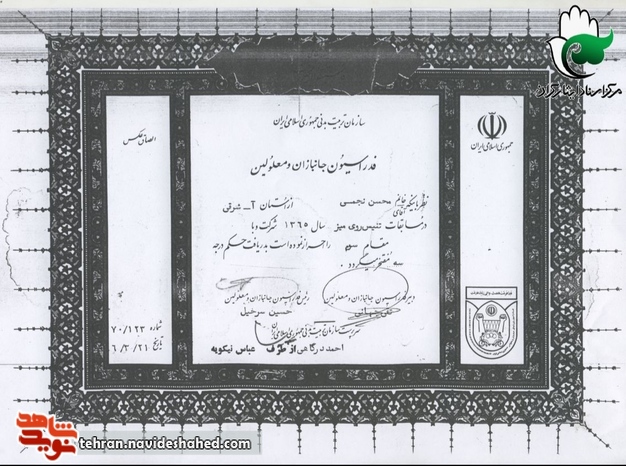 مرکز اسناد ایثارگران
جمهوری اسلامی ایران
سازمان تربیت بدنی جمهوری اسلامی ایران
فدراسیون جانبازان و معلولین
نظر باینکه خانم محسن نجمی از استان آـ شرقی
آقای
در مسابقات تنیس روی میز سال ۱۳۶۵ شرکت و با
مقام سه را احراز نموده است بدریافت حکم درجه
سه مفتخر میگردد .
دبیر فدراسیون جانبازان و معلولین
رئیس فدراسیون جانبازان و معلولین
حسین سرخیل
سرپرست سازمان تربیت بدنی جمهوری اسلامی ایران
احمد درگاهی از طرف عباس نیکویه
الصاق عکس
شماره ۷۰/۱۲۳
تاریخ ۶/۳/۲۱
نوید شاهد
tehran.navideshahed.com